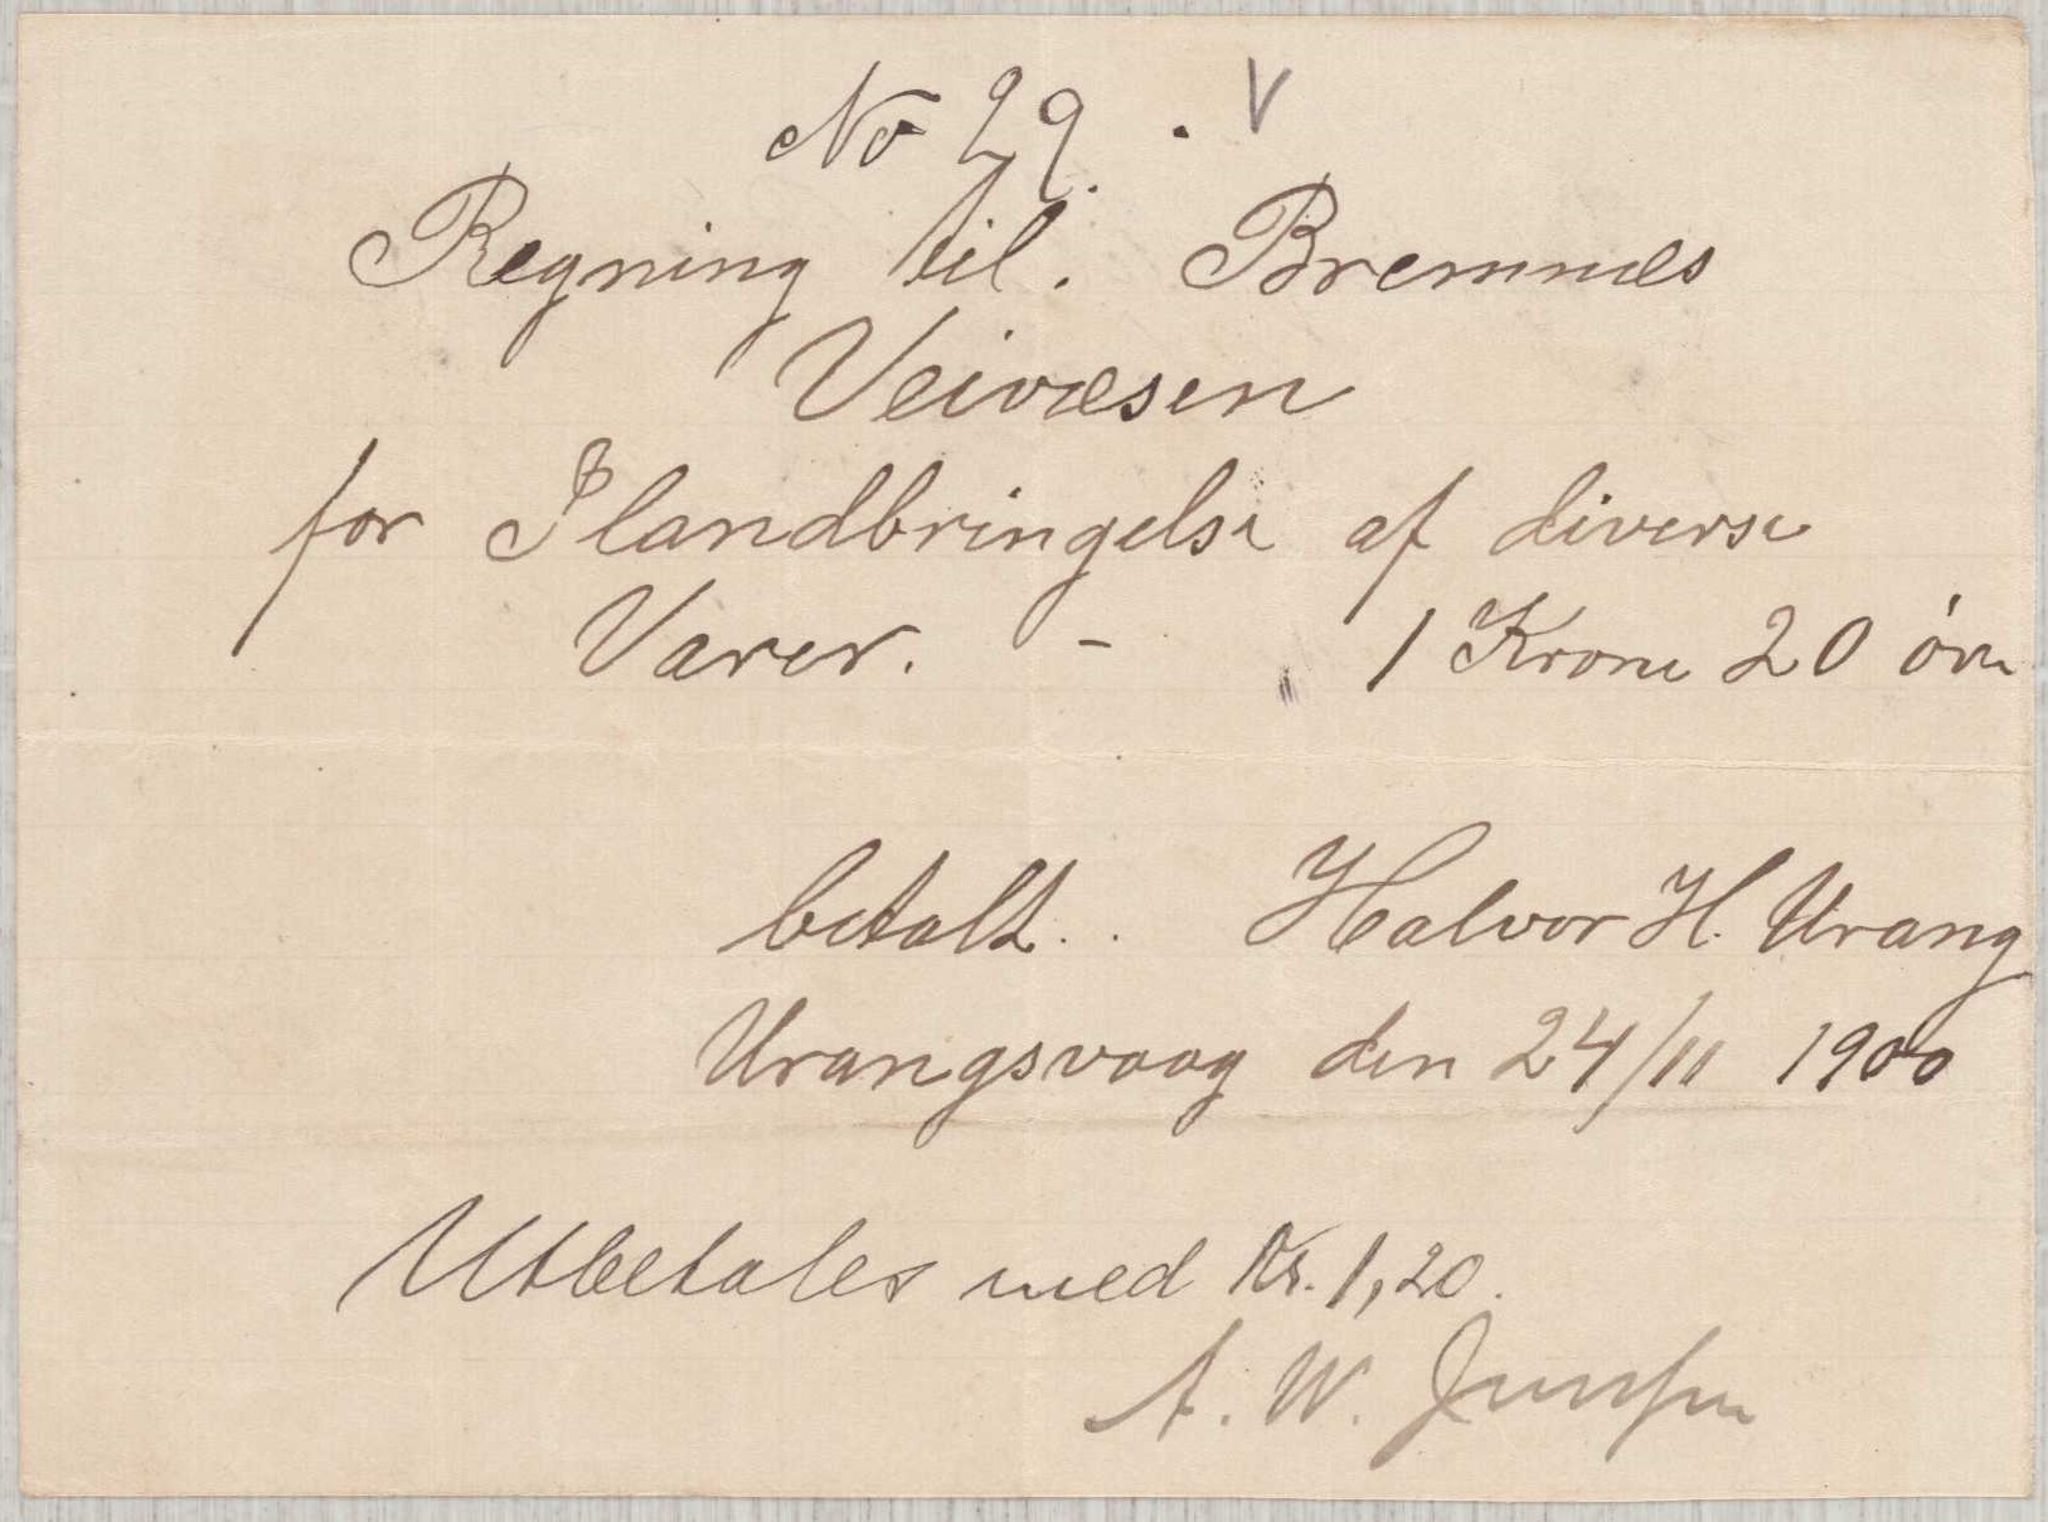 No 29. V
Regning til. Bremnæs
Veivæsen
for Ilandbringelse af diverse
Varer. - 1 Krone 20 öre
betalt. Halvor H. Urang
Urangsvaag den 24/11 1900
Utbetales med Kr. 1,20.
A. W.